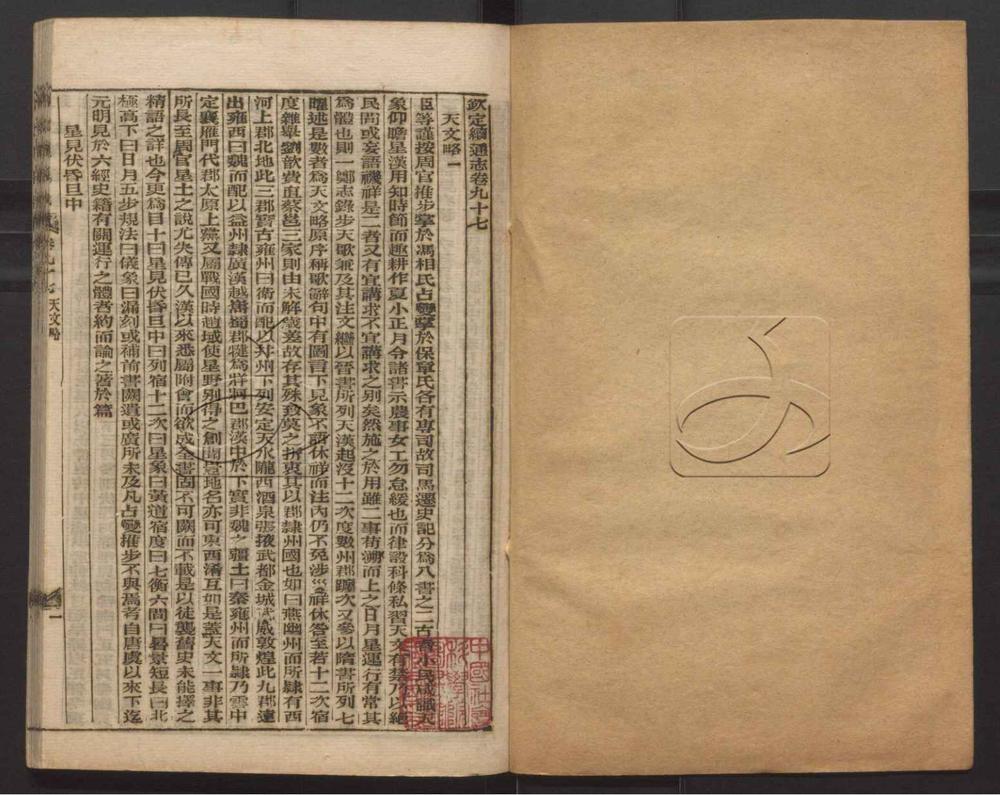 欽定續通志卷九十七
天文略一
臣等謹按周官推步掌於馮相氏占變掌於保章氏各有專司故司馬遷史記分爲八書之二古者小民咸識天
象仰瞻星漢用知時節而趣耕作夏小正月令諸書示農事女工勿怠緩也而律設科條私習天文有禁乃以絕
民間或妄語禨祥是二者又有宜講求不宜講求之別矣然施之於用雖二事苟溯而上之日月星運行有常其
爲體也則一鄭志錄步天歌兼及其注文繼以晉書所列天漢起沒十二次度數州郡躔次又參以隋書所列七
曜述是數者爲天文略原序稱歌辭句中有圖言下見象不語休祥而注內仍不免涉災祥休咎至若十二次宿
度雜舉劉歆費直蔡邕三家則由未解歲差故存其殊致莫之折衷其以郡隸州國也如曰燕幽州而所隸有西
河上郡北地此三郡實古雍州曰衛而配以幷州下列安定天水隴西酒泉張掖武都金城武威敦煌此九郡遠
出雍西曰魏而配以益州隸廣漢越巂蜀郡犍爲牂牁巴郡漢中於下實非魏之疆土曰秦雍州而所隸乃雲中
定襄雁門代郡太原上黨又屬戰國時趙域使星野別得之創聞豈地名亦可東西淆互如是蓋天文一事非其
所長至周官星土之說尤失傳已久漢以來悉屬附會而欲成全書固不可闕而不載是以徒襲舊史未能擇之
精語之詳也今更爲目十曰星見伏昏旦中曰列宿十二次曰星象曰黃道宿度曰七衡六間曰晷景短長曰北
極高下曰日月五步規法曰儀象曰漏刻或補前書闕遺或廣所未及凡占變推步不與焉者自唐虞以來下迄
元明見於六經史籍有關運行之體者約而論之著於篇
星見伏昏旦中
卷九十七 天文略
一